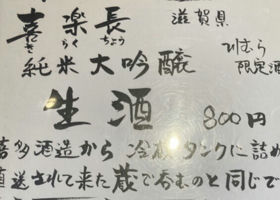 喜楽長 滋賀県
き らく ちょう ひむら
純米大吟醸 限定酒
生酒 800円
喜多酒造から 冷蔵タンクに詰め
直送されて来た蔵で呑むのと同じで